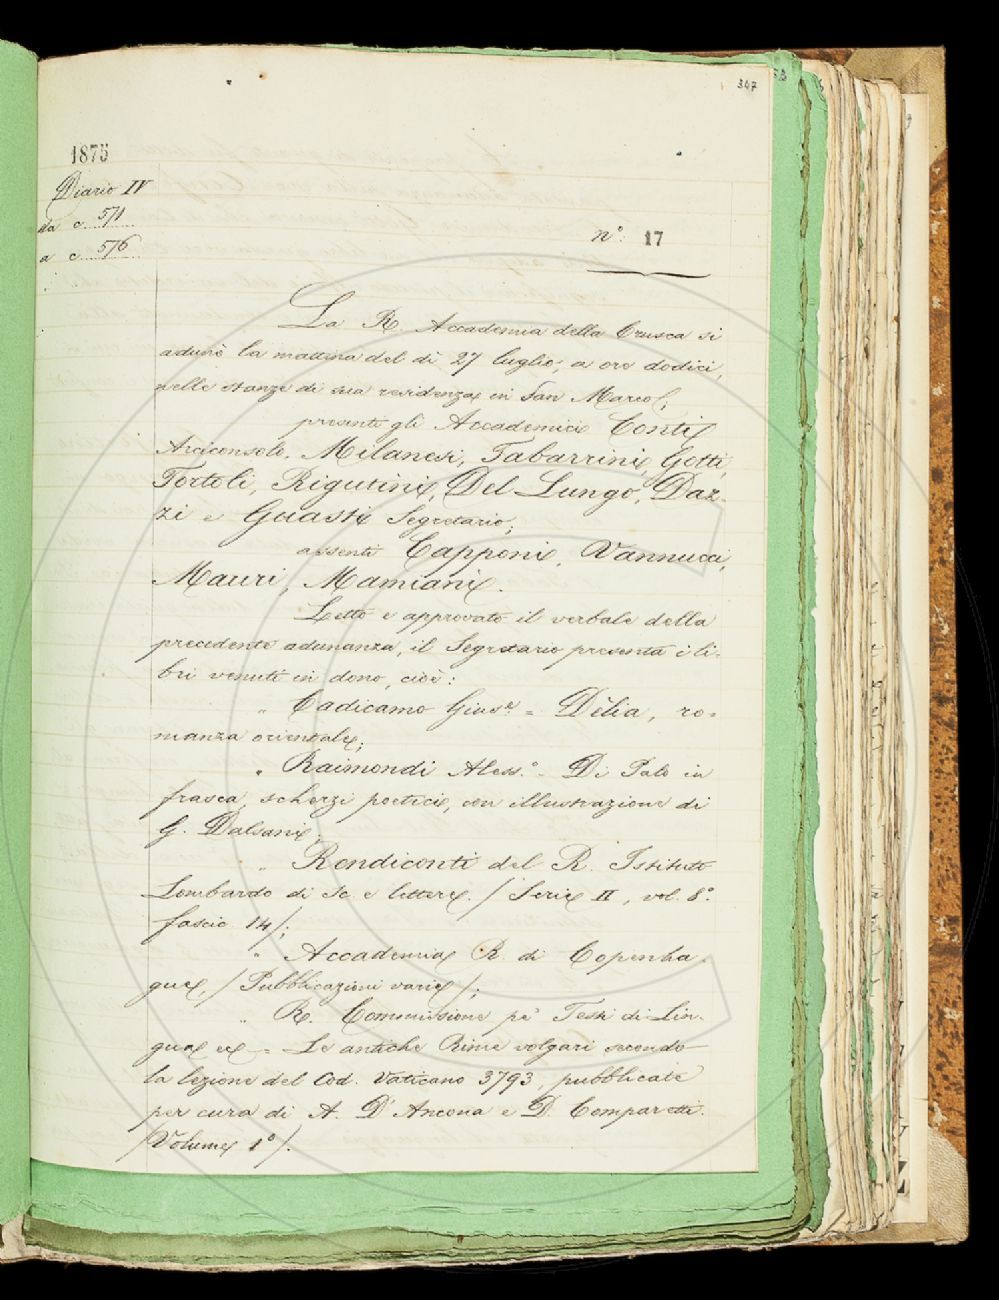 347
1875
Diario IV
da c. 571
a c. 576
n.° 17
La R. Accademia della Crusca si
adunò la mattina del dì 27 luglio, a ore dodici,
nelle stanze di sua residenza in San Marco;
presenti gli Accademici Conti
Arciconsolo, Milanesi, Tabarrini, Gotti,
Tortoli, Rigutini, Del Lungo, Daz-
zi e Guasti Segretario;
assenti Capponi, Vannucci,
Mauri, Mamiani.
Letto e approvato il verbale della
precedente adunanza, il Segretario presenta i li-
bri venuti in dono, cioè:
" Cadicamo Gius.e = Dèlia, ro-
manza orientale;
" Raimondi Aless.o - Di Palo in
frasca, scherzi poetici, con illustrazione di
G. Dalsani;
" Rendiconti del R. Istituto
Lombardo di Sc. e lettere. / Serie II, vol. 8.°
fascic. 14 /;
" Accademia R. di Copenha-
gue, / Pubblicazioni varie /;
" R. Commissione pe' Testi di Lin-
gua ec = Le antiche Rime volgari secondo
la lezione del Cod. Vaticano 3793, pubblicate
per cura di A. D'Ancona e D. Comparetti.
/ Volume 1° /.